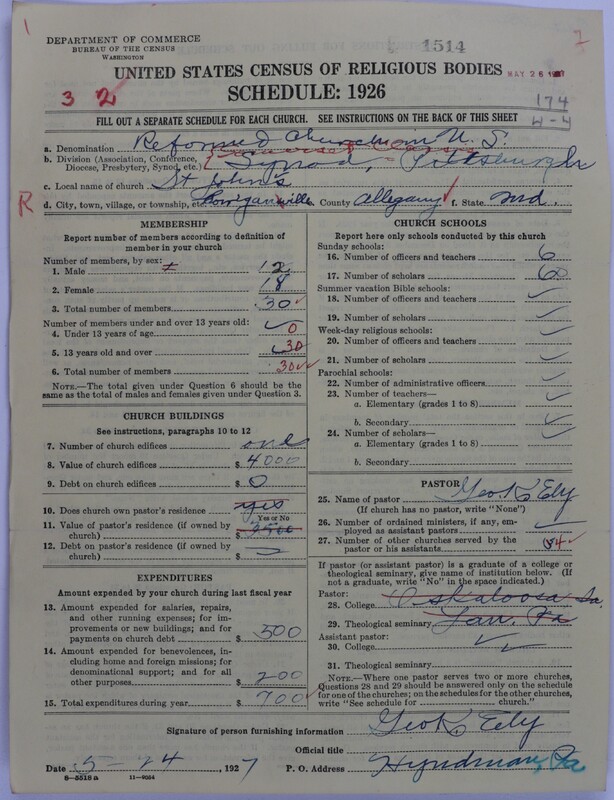 DEPARTMENT OF COMMERCE
BUREAU OF THE CENSUS
WASHINGTON
1514
7
UNITED STATES CENSUS OF RELIGIOUS BODIES
MAY 26 1927
SCHEDULE: 1926
3 2
174
4-4
FILL OUT A SEPARATE SCHEDULE FOR EACH CHURCH. SEE INSTRUCTIONS ON THE BACK OF THIS SHEET
a. Denomination Reformed Church in U. S.
b. Division (Association, Conference, Diocese, Presbytery, Synod, etc.) Synod, Pittsburgh
c. Local name of church St. John's
R d. City, town, village, or township, etc. Corriganville e. County Allegany f. State Md.
MEMBERSHIP
Report number of members according to definition of member in your church
Number of members, by sex:
1. Male 12
2. Female 18
3. Total number of members 30
Number of members under and over 13 years old:
4. Under 13 years of age 0
5. 13 years old and over 30
6. Total number of members 30
NOTE.—The total given under Question 6 should be the same as the total of males and females given under Question 3.
CHURCH BUILDINGS
See instructions, paragraphs 10 to 12
7. Number of church edifices one
8. Value of church edifices $ 4000
9. Debt on church edifices $ 0
10. Does church own pastor's residence yes
Yes or No
11. Value of pastor's residence (if owned by church) $ 3500
12. Debt on pastor's residence (if owned by church) $
EXPENDITURES
Amount expended by your church during last fiscal year
13. Amount expended for salaries, repairs, and other running expenses; for improvements or new buildings; and for payments on church debt $ 500
14. Amount expended for benevolences, including home and foreign missions; for denominational support; and for all other purposes $ 200
15. Total expenditures during year $ 700
CHURCH SCHOOLS
Report here only schools conducted by this church
Sunday schools:
16. Number of officers and teachers 6
17. Number of scholars 60
Summer vacation Bible schools:
18. Number of officers and teachers
19. Number of scholars
Week-day religious schools:
20. Number of officers and teachers
21. Number of scholars
Parochial schools:
22. Number of administrative officers
23. Number of teachers—
a. Elementary (grades 1 to 8)
b. Secondary
24. Number of scholars—
a. Elementary (grades 1 to 8)
b. Secondary
PASTOR
25. Name of pastor Geo K Ely
(If church has no pastor, write "None")
26. Number of ordained ministers, if any, employed as assistant pastors
27. Number of other churches served by the pastor or his assistants 4
If pastor (or assistant pastor) is a graduate of a college or theological seminary, give name of institution below. (If not a graduate, write "No" in the space indicated.)
Pastor:
28. College Oskaloosa Ia
29. Theological seminary Lan. Pa
Assistant pastor:
30. College
31. Theological seminary
NOTE.—Where one pastor serves two or more churches, Questions 28 and 29 should be answered only on the schedule for one of the churches; on the schedules for the other churches, write "See schedule for ........ church."
Signature of person furnishing information Geo K Ely
Official title
Date 5-24, 1927 P. O. Address Hyndman, Pa
8-5518 a 11-9064